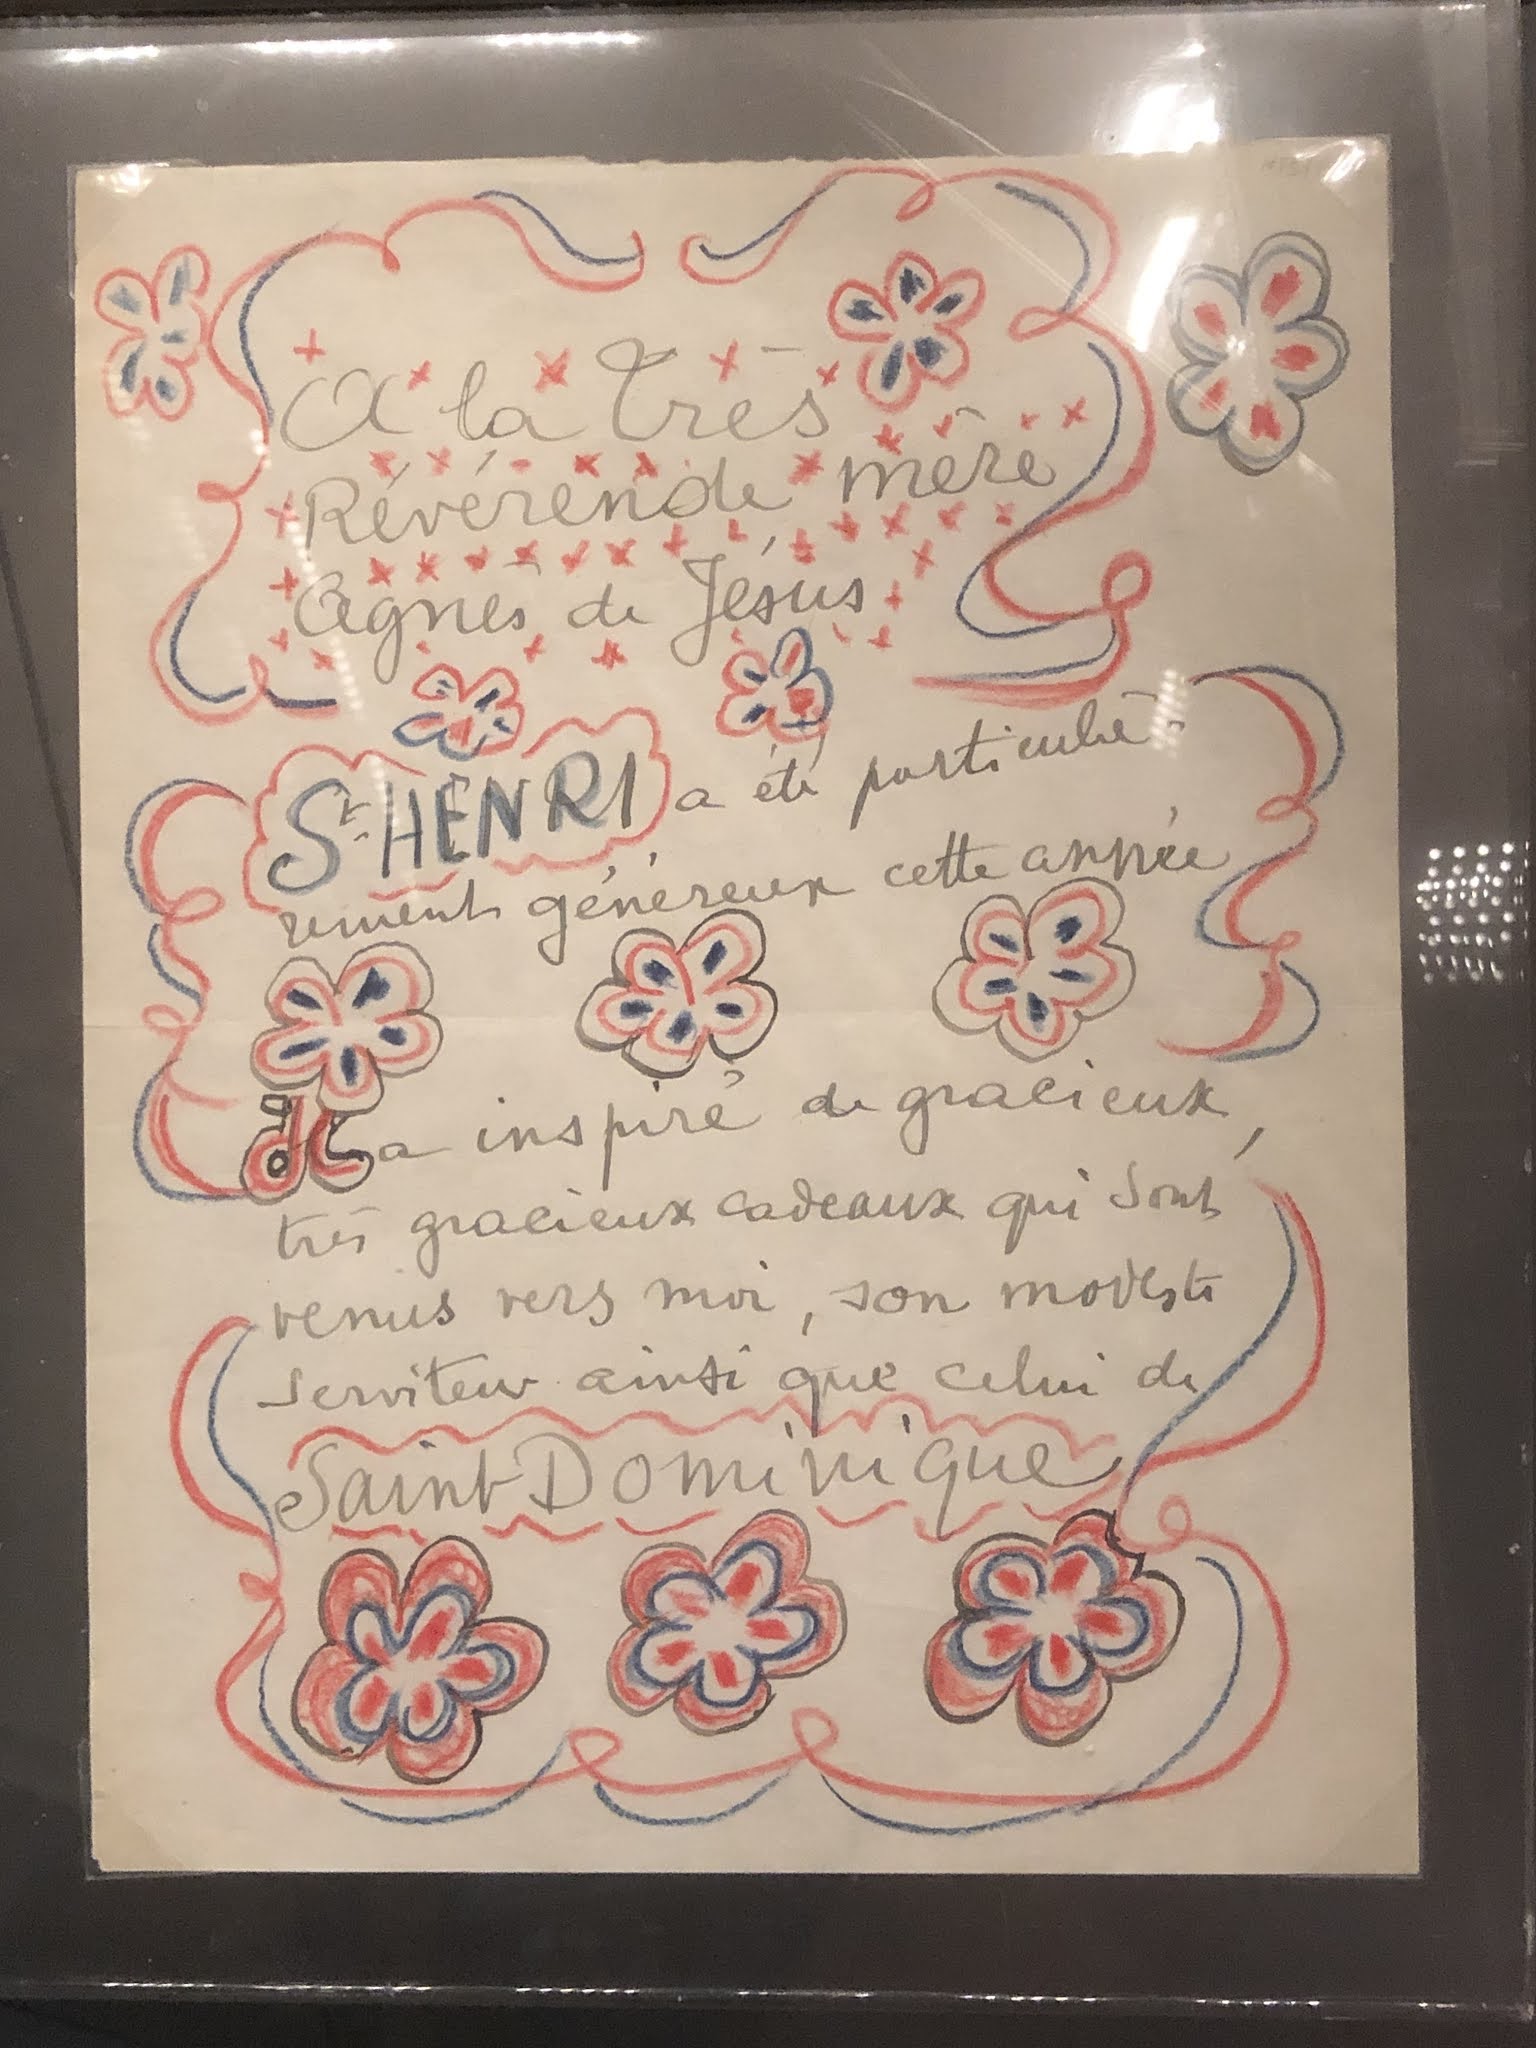 A la Très
Révérende mère
Agnès de Jésus
St. HENRI a été particuliè-
rement généreux cette année
Il a inspiré de gracieux,
très gracieux cadeaux qui sont
venus vers moi, son modeste
serviteur ainsi que celui de
Saint Dominique